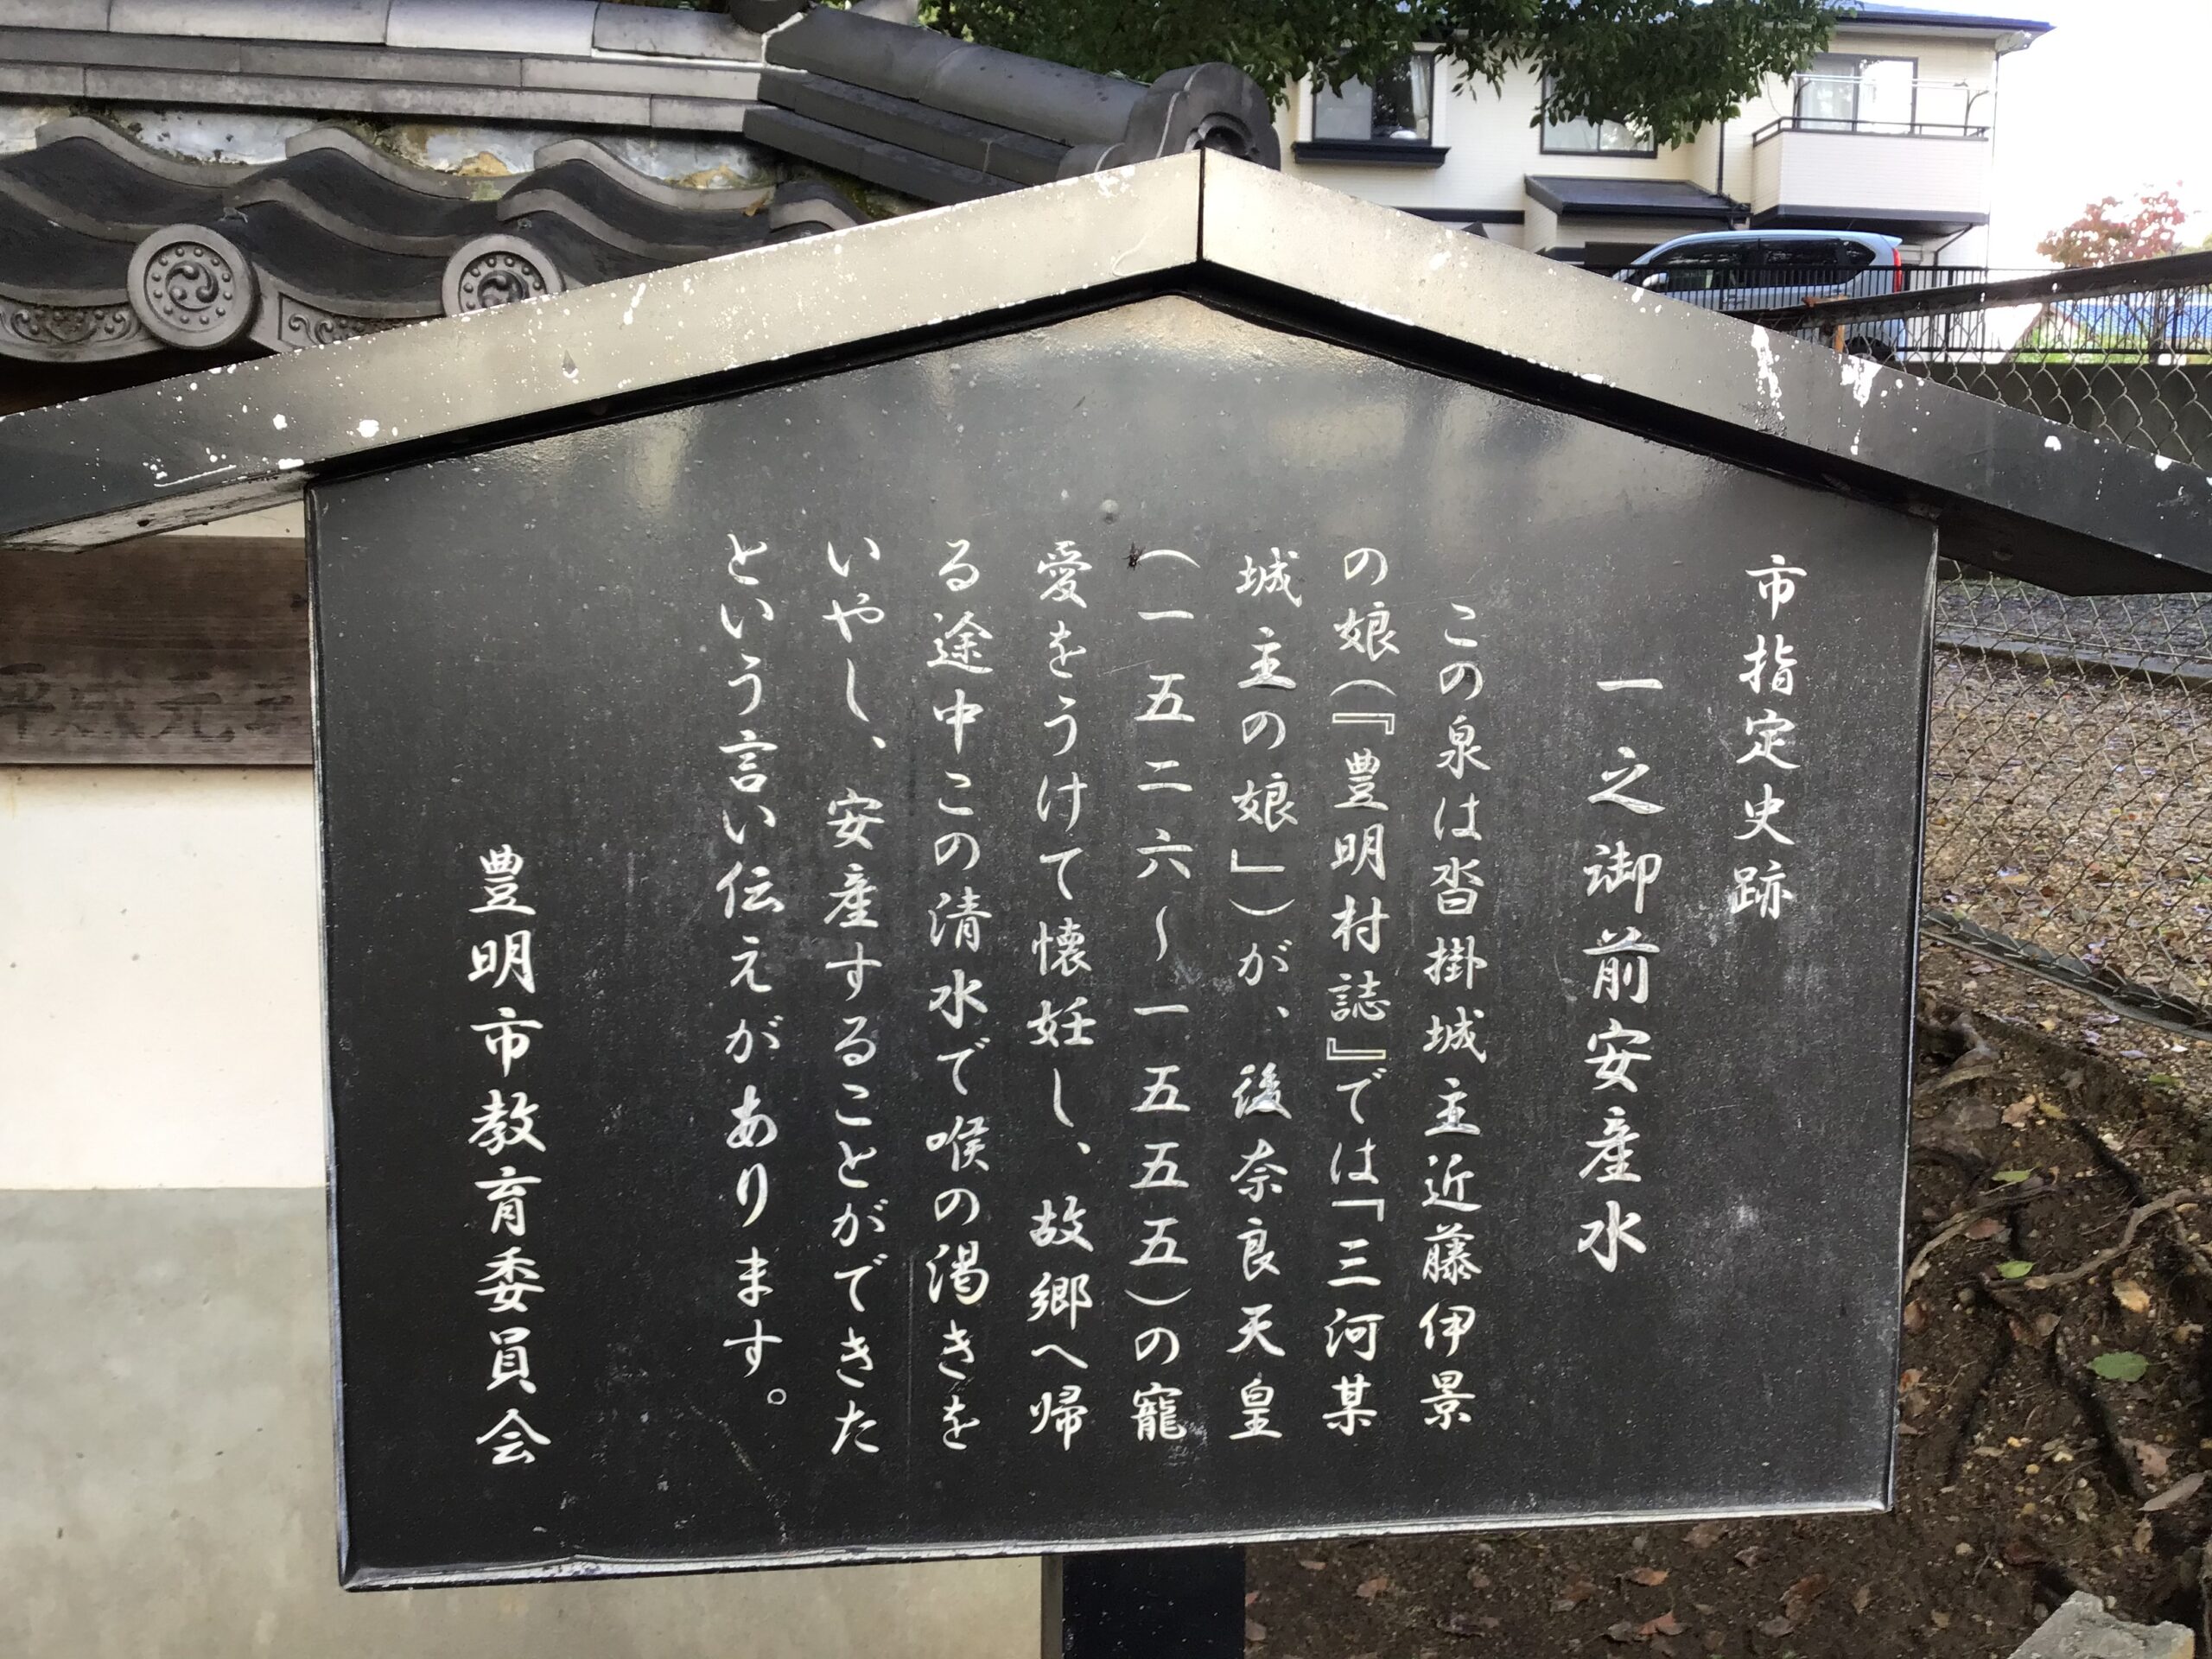 市指定史跡
一之御前安産水
この泉は沓掛城主近藤伊景
の娘(『豊明村誌』では「三河某
城主の娘」)が、後奈良天皇
(一五二六～一五五五)の寵
愛をうけて懐妊し、故郷へ帰
る途中この清水で喉の渇きを
いやし、安産することができた
という言い伝えがあります。
豊明市教育委員会
平成元